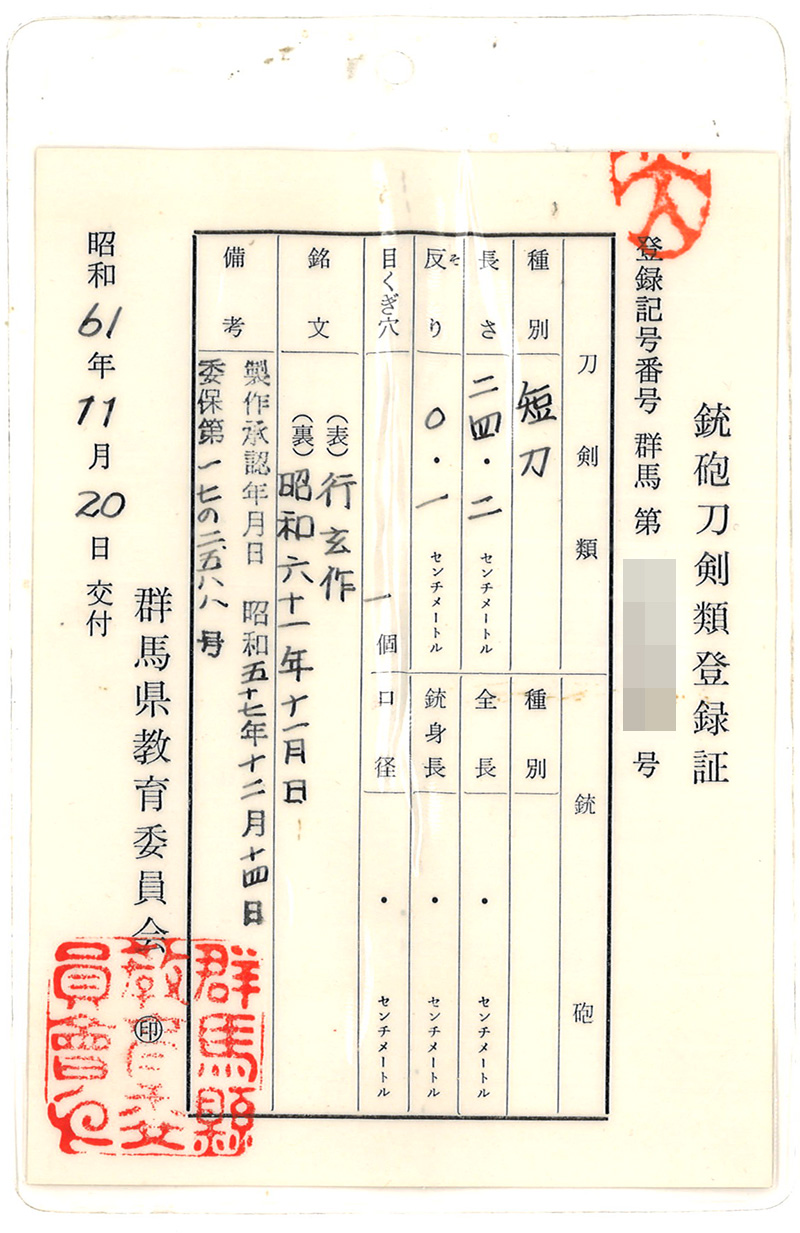 銃砲刀剣類登録証
登録記号番号 群馬 第 号
刀剣類
種別 短刀
長さ 二四・二 センチメートル
反り そ 〇・一 センチメートル
目くぎ穴 一個
銘文 (表)行玄作
(裏)昭和六十一年十一月日
備考 製作承認年月日 昭和五十七年十二月十四日
委保第一七の二五八八号
銃砲
種別
全長 ・ センチメートル
銃身長 ・ センチメートル
口径 ・ センチメートル
昭和61年11月20日交付
群馬県教育委員会 印
群馬縣
教育委
員會之